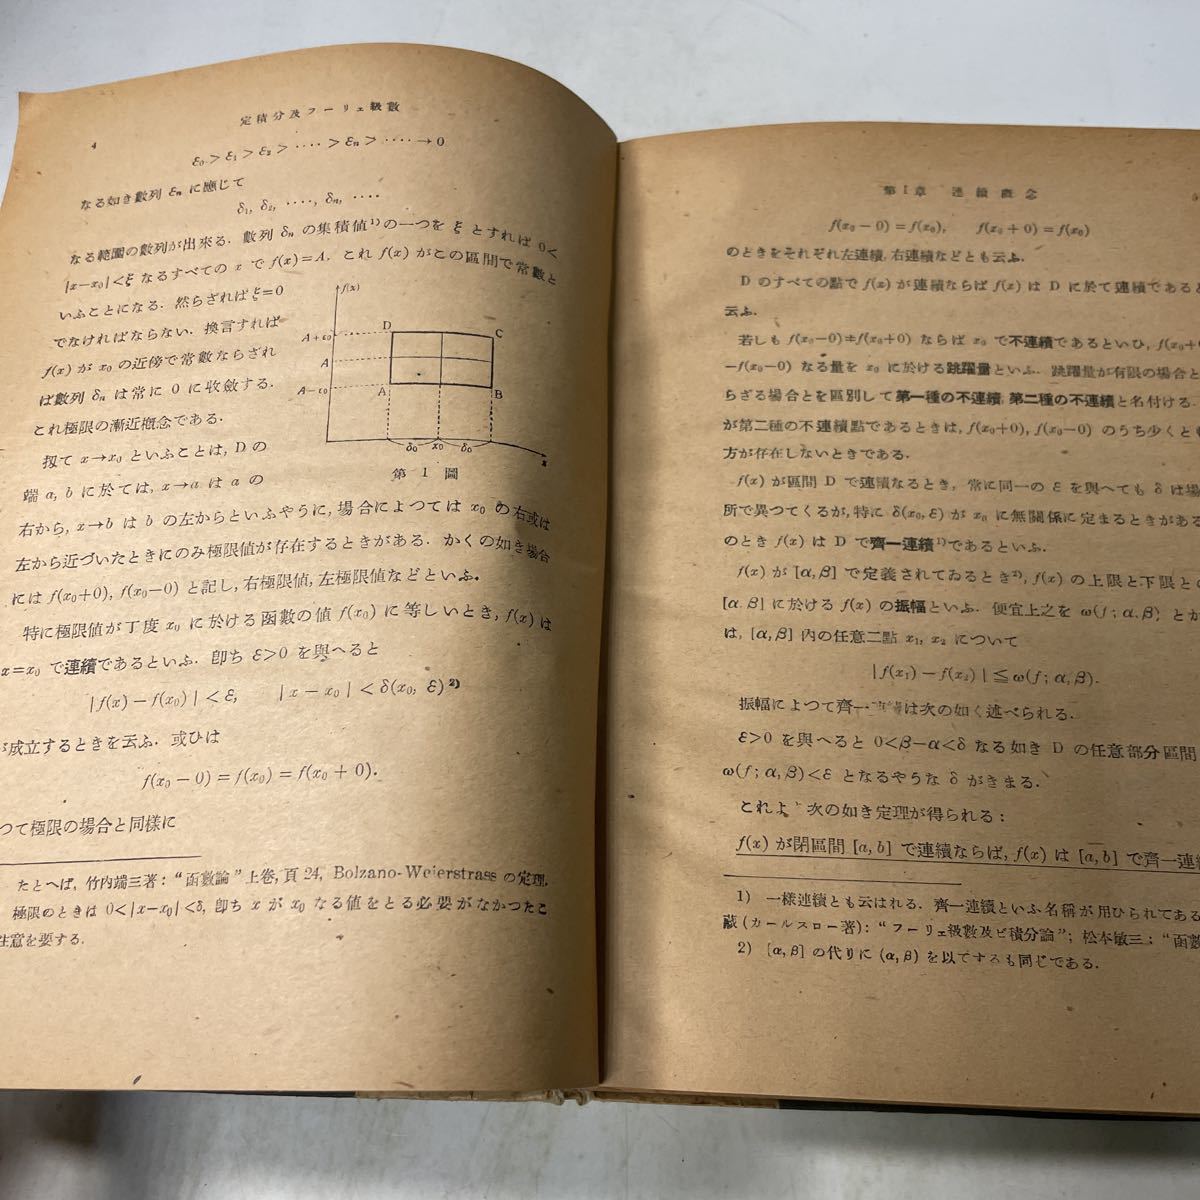 4
定積分及フーリェ級數
ε₀ > ε₁ > ε₂ > ‥‥ > εn > ‥‥ → 0
なる如き數列 εn に應じて
δ₁, δ₂, ‥‥, δn, ‥‥
なる範圍の數列が出來る. 數列 δn の集積値¹⁾の一つを ξ とすれば 0<
|x−x₀|<ξ なるすべての x で f(x)=A. これ f(x) がこの區間で常數と
いふことになる. 然らざれば ξ=0
でなければならない. 換言すれば
f(x) が x₀ の近傍で常數ならざれ
ば數列 δn は常に 0 に收斂する.
これ極限の漸近概念である.
扨て x→x₀ といふことは, D の
端 a, b に於ては, x→a は a の
f(x)
A+ε₀
D
C
A
A−ε₀
A
B
δ₀
x₀
δ₀
x
第 1 圖
右から, x→b は b の左からといふやうに, 場合によつては x₀ の右或は
左から近づいたときにのみ極限値が存在するときがある. かくの如き場合
には f(x₀+0), f(x₀−0) と記し, 右極限値, 左極限値などといふ.
特に極限値が丁度 x₀ に於ける函數の値 f(x₀) に等しいとき, f(x) は
x=x₀ で連續であるといふ. 卽ち ε>0 を與へると
|f(x)−f(x₀)| < ε, |x−x₀| < δ(x₀, ε)²⁾
が成立するときを云ふ. 或ひは
f(x₀−0) = f(x₀) = f(x₀+0).
つて極限の場合と同樣に
たとへば, 竹内端三著: “函數論” 上卷, 頁 24, Bolzano-Weierstrass の定理.
極限のときは 0<|x−x₀|<δ, 卽ち x が x₀ なる値をとる必要がなかつたこ
注意を要する.
第 I 章 連續概念
5
f(x₀−0) = f(x₀), f(x₀+0) = f(x₀)
のときをそれぞれ左連續, 右連續などとも云ふ.
D のすべての點で f(x) が連續ならば f(x) は D に於て連續であると
云ふ.
若しも f(x₀−0)≠f(x₀+0) ならば x₀ で不連續であるといひ, f(x₀+
−f(x₀−0) なる量を x₀ に於ける跳躍量といふ. 跳躍量が有限の場合と
らざる場合とを區別して第一種の不連續, 第二種の不連續と名付ける.
が第二種の不連續點であるときは, f(x₀+0), f(x₀−0) のうち少くとも
方が存在しないときである.
f(x) が區間 D で連續なるとき, 常に同一の ε を與へても δ は場
所で異つてくるが, 特に δ(x₀, ε) が x₀ に無關係に定まるときがある
のとき f(x) は D で齊一連續¹⁾であるといふ.
f(x) が [α, β] で定義されてゐるとき²⁾, f(x) の上限と下限との
[α, β] に於ける f(x) の振幅といふ. 便宜上之を ω(f; α, β) とか
は, [α, β] 内の任意二點 x₁, x₂ について
|f(x₁)−f(x₂)| ≦ ω(f; α, β).
振幅によつて齊一は次の如く述べられる.
ε>0 を與へると 0<β−α<δ なる如き D の任意部分區間
ω(f; α, β)<ε となるやうな δ がきまる.
これよ 次の如き定理が得られる:
f(x) が閉區間 [a, b] で連續ならば, f(x) は [a, b] で齊一連續
1) 一樣連續とも云はれる. 齊一連續といふ名稱が用ひられてある
藏(カールスロー著): “フーリェ級數及ビ積分論”; 松本敏三: “函數
2) [α, β] の代りに (α, β) を以てするも同じである.